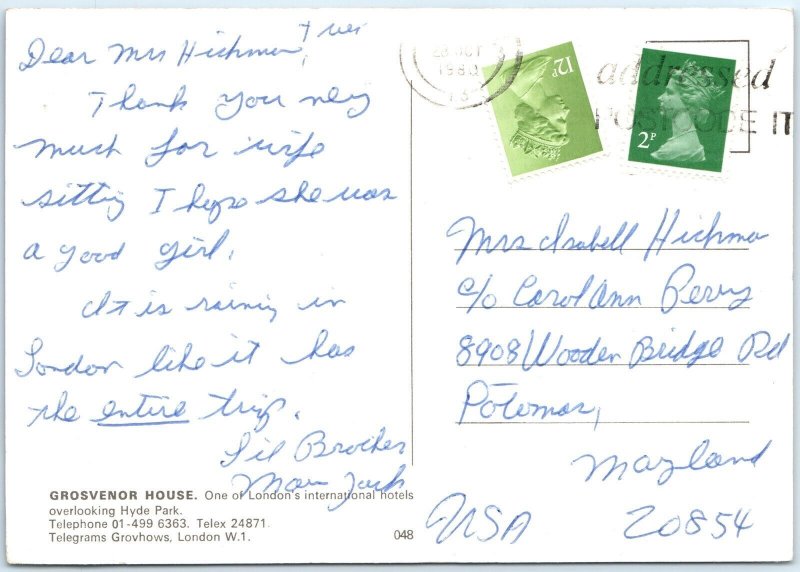 Dear Mrs Hickman,
Thank you very
much for wife
sitting I hope she was
a good girl.
It is raining in
London like it has
the entire trip.
GROSVENOR HOUSE. One of London's international hotels
overlooking Hyde Park.
Telephone 01-499 6363. Telex 24871.
Telegrams Grovhows, London W.1.
048
1980
12P
2P
addressed
POSTCODE IT
Mrs Isabell Hickman
c/o Carol Ann Perry
8908 Wooden Bridge Rd
Potomac,
Maryland
USA 20854